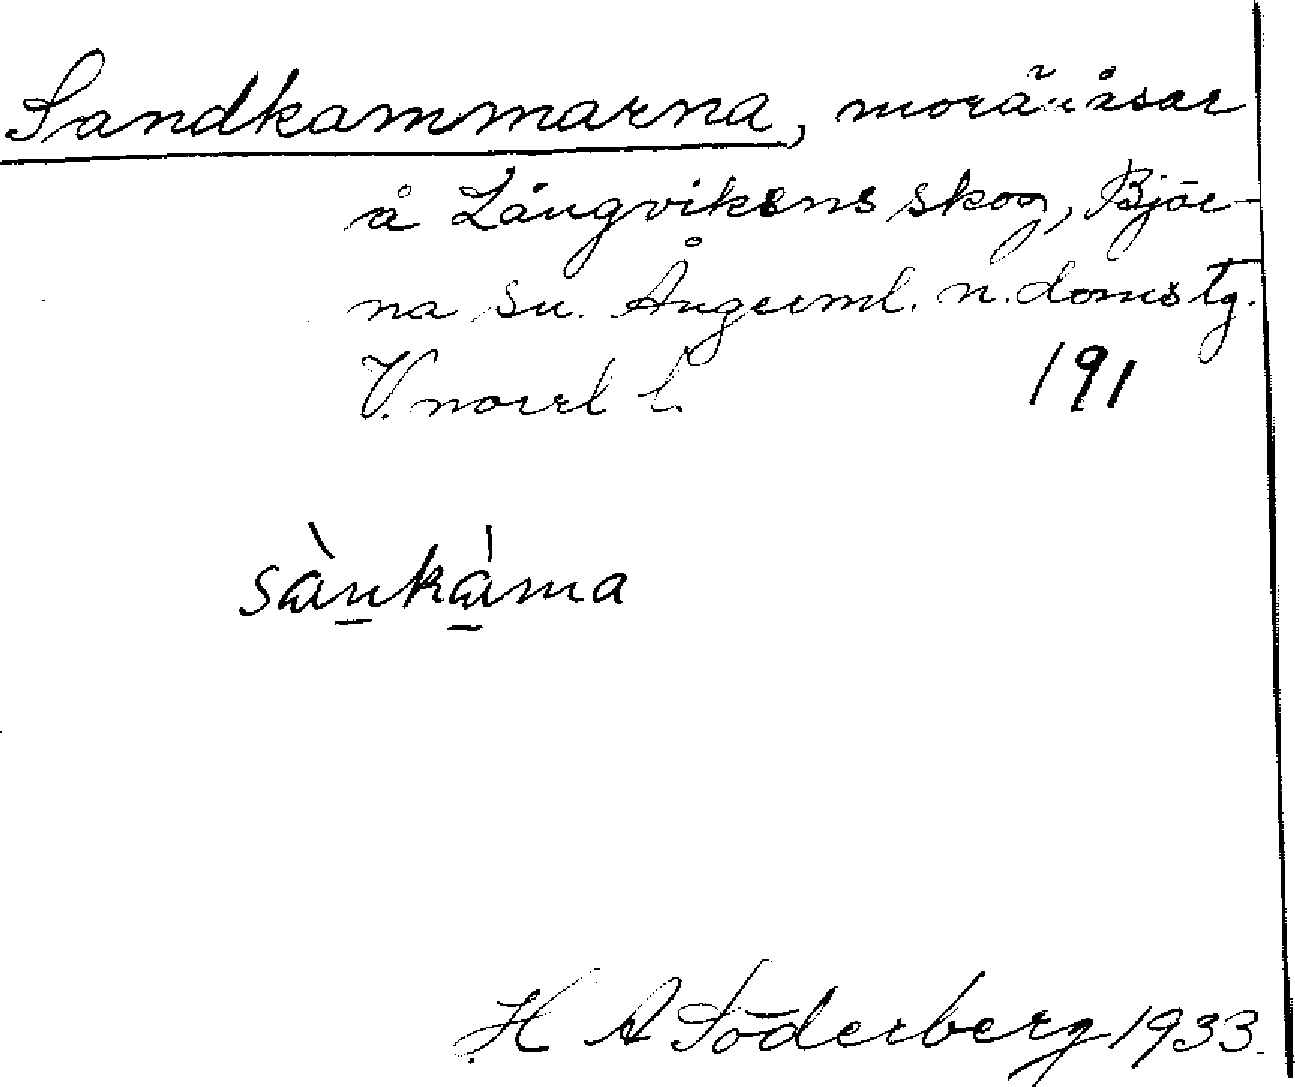 Sandkammarna, moränåsar
å Långvikens skog, Björ-
na sn. Ångerml. n. domstg.
V.norrl l.
191
sànkàma
H A Söderberg 1933.